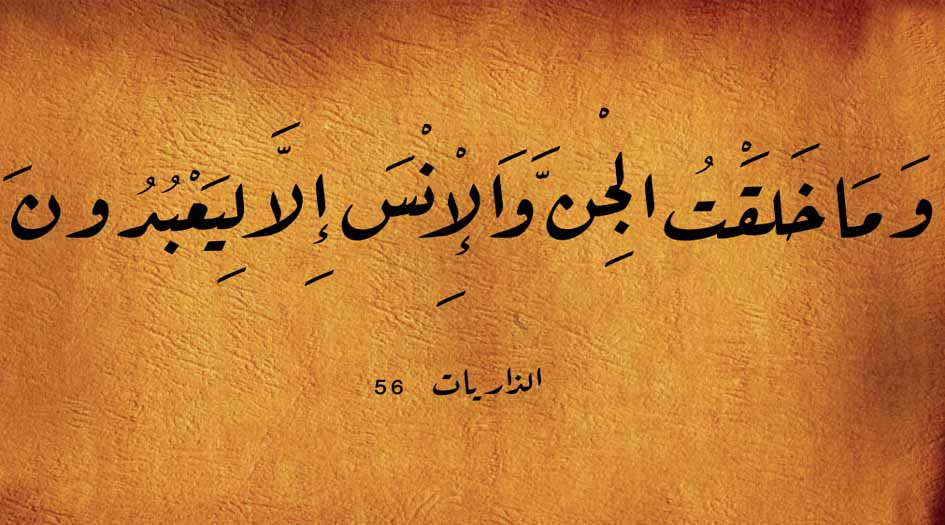 وَمَا خَلَقْتُ الْجِنَّ وَالَإِنْسَ إِلَّا لِيَعْبُدُونَ
الذاريات 56